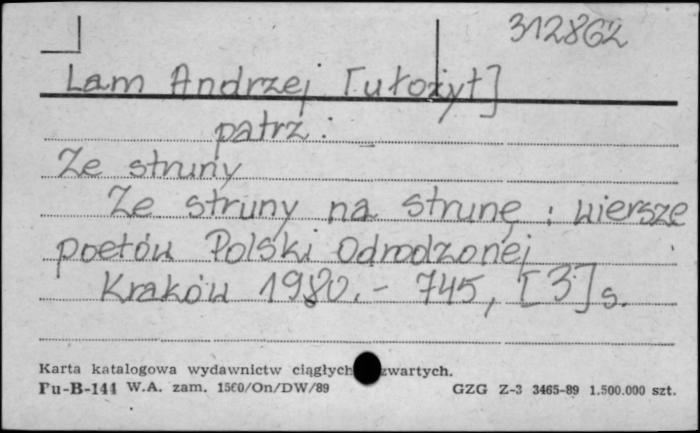 312862
Lam Andrzej [ułożył]
patrz:
Ze struny
Ze struny na strunę : wiersze
poetów Polski Odrodzonej
Kraków 1980.- 745, [3] s.
Karta katalogowa wydawnictw ciągłych zwartych.
Pu-B-144 W.A. zam. 1560/On/DW/89 GZG Z-3 3465-89 1.500.000 szt.